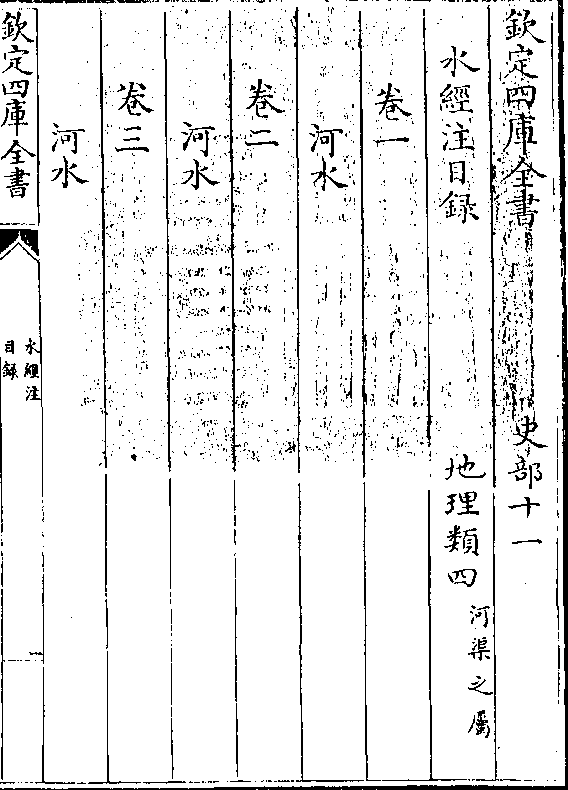 欽定四庫全書　史部十一
水經注目録　地理類四河渠之屬
卷一
河水
卷二
河水
卷三
河水
欽定四庫全書
水經注
目録
一